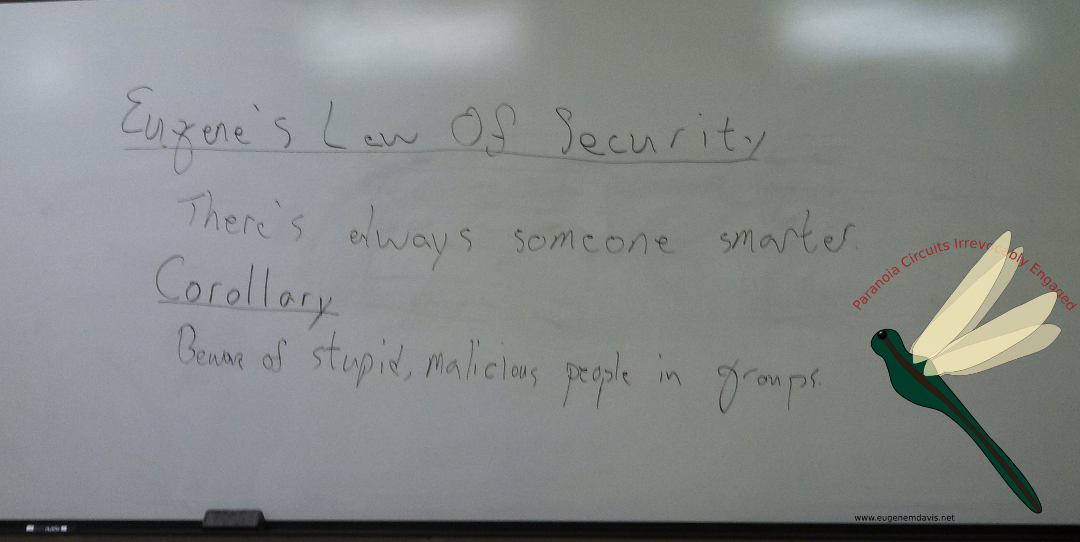 Eugene's Law Of Security
There's always someone smarter
Corollary
Beware of stupid, malicious people in groups.
Paranoia Circuits Irrevocably Engaged
www.eugenemdavis.net